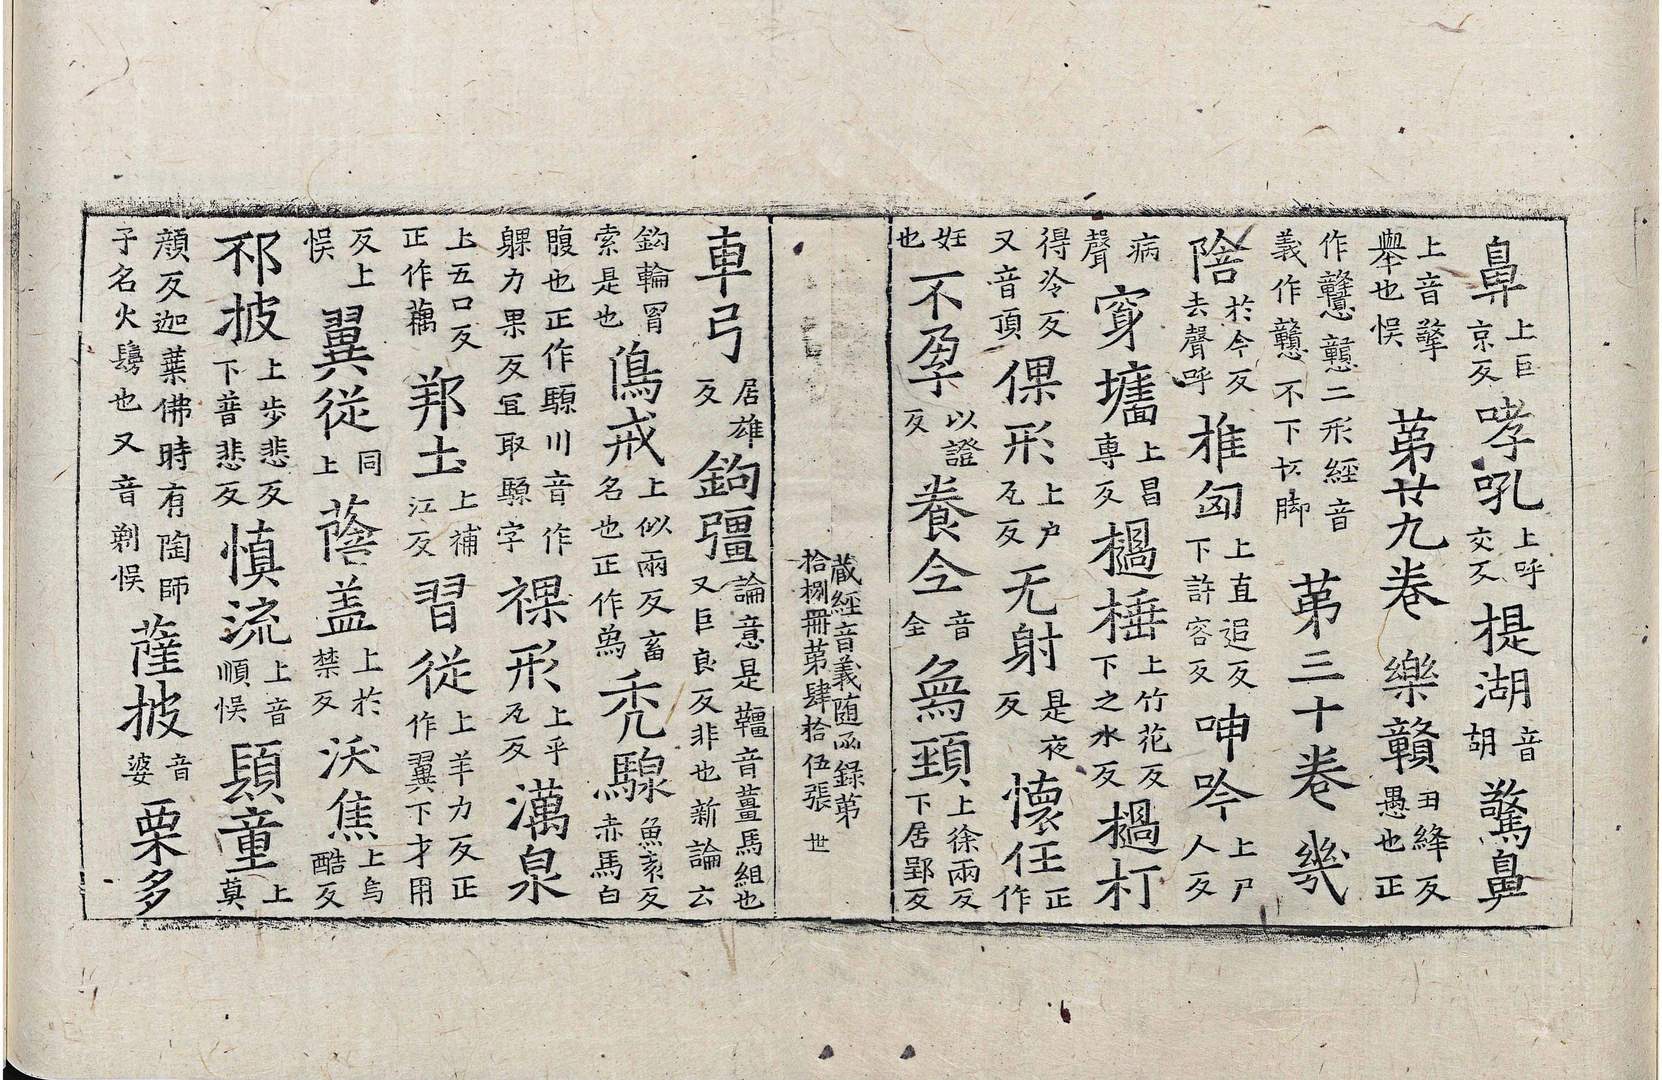 鼻上巨京反哮吼上呼交反榥湖音胡驚鼻
上音擎舉也悮 第廿九卷 樂贛丑絳反愚也正
作戇戇二形經音義作戇不下㧺脚 第三十卷 幾
陰於今反去聲呼椎匈上直追反下許容反呻吟上尸人反
病聲穿墻上昌專反檛棰上竹花反下之水反檛打
得冷反又音頂倮形上户瓦反无射是夜反懷任正作
妊也不孕以證反養仝音全爲頸上徐兩反下居郢反
藏經音義随函録第
拾捌冊第肆拾伍張 世
車弓居雄反鉤彊論意是韁音薑馬組也又巨良反非也新論云
鉤輪罥索是也㑨戒上似兩反畜名也正作爲禿騡魚袁反赤馬白
腹也正作騵川音作騍力果反冝取騵字裸形上乎瓦反滿泉
上五口反正作藕邦土上補江反習從上羊力反正作翼下才用
反上悮翼從同上蔭盖上於禁反沃焦上烏酷反
邳披上步悲反下普悲反慎流上音順悮顕童上莫
顛反迦葉佛時有陶師子名火鬘也又音剃悮薩披音婆栗多